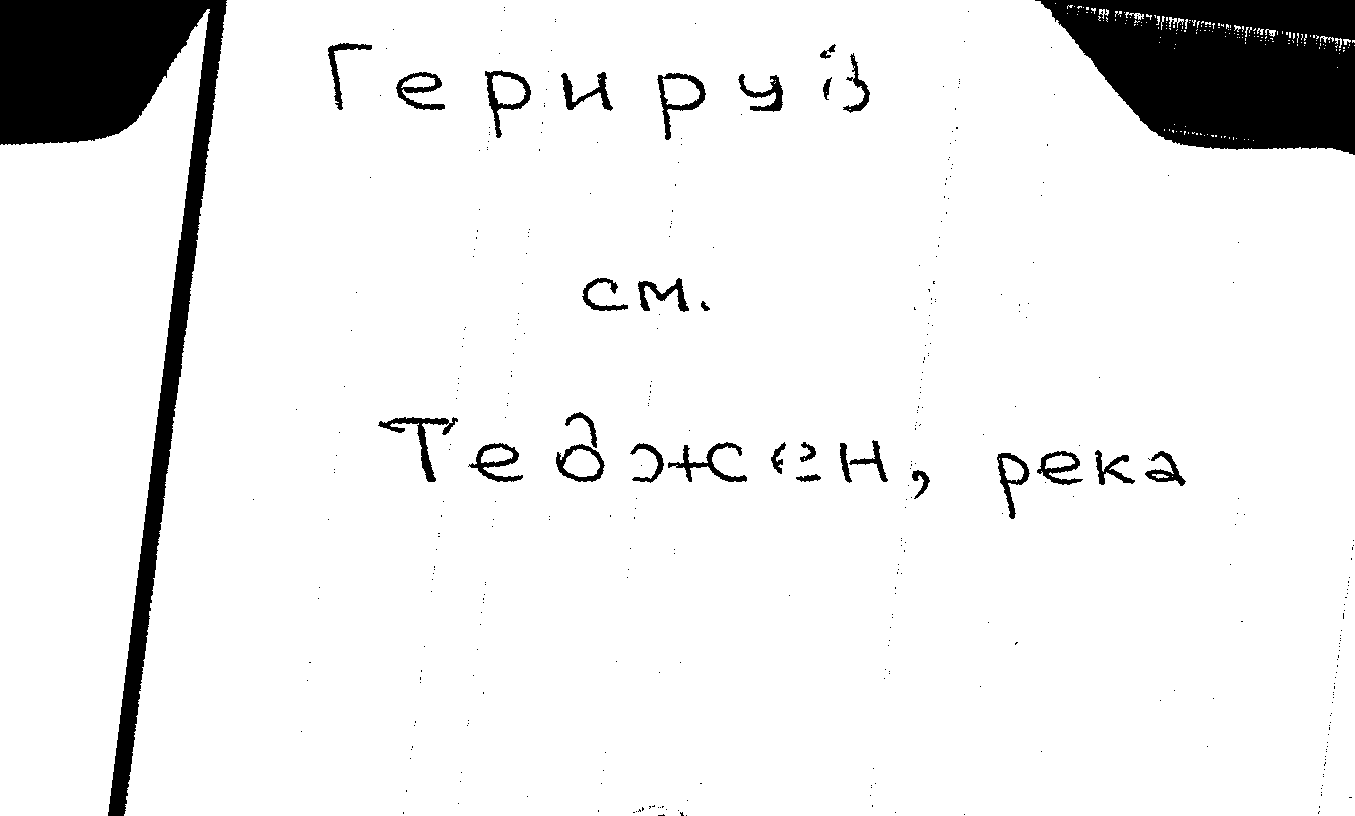 Герируд
см.
Теджен, река